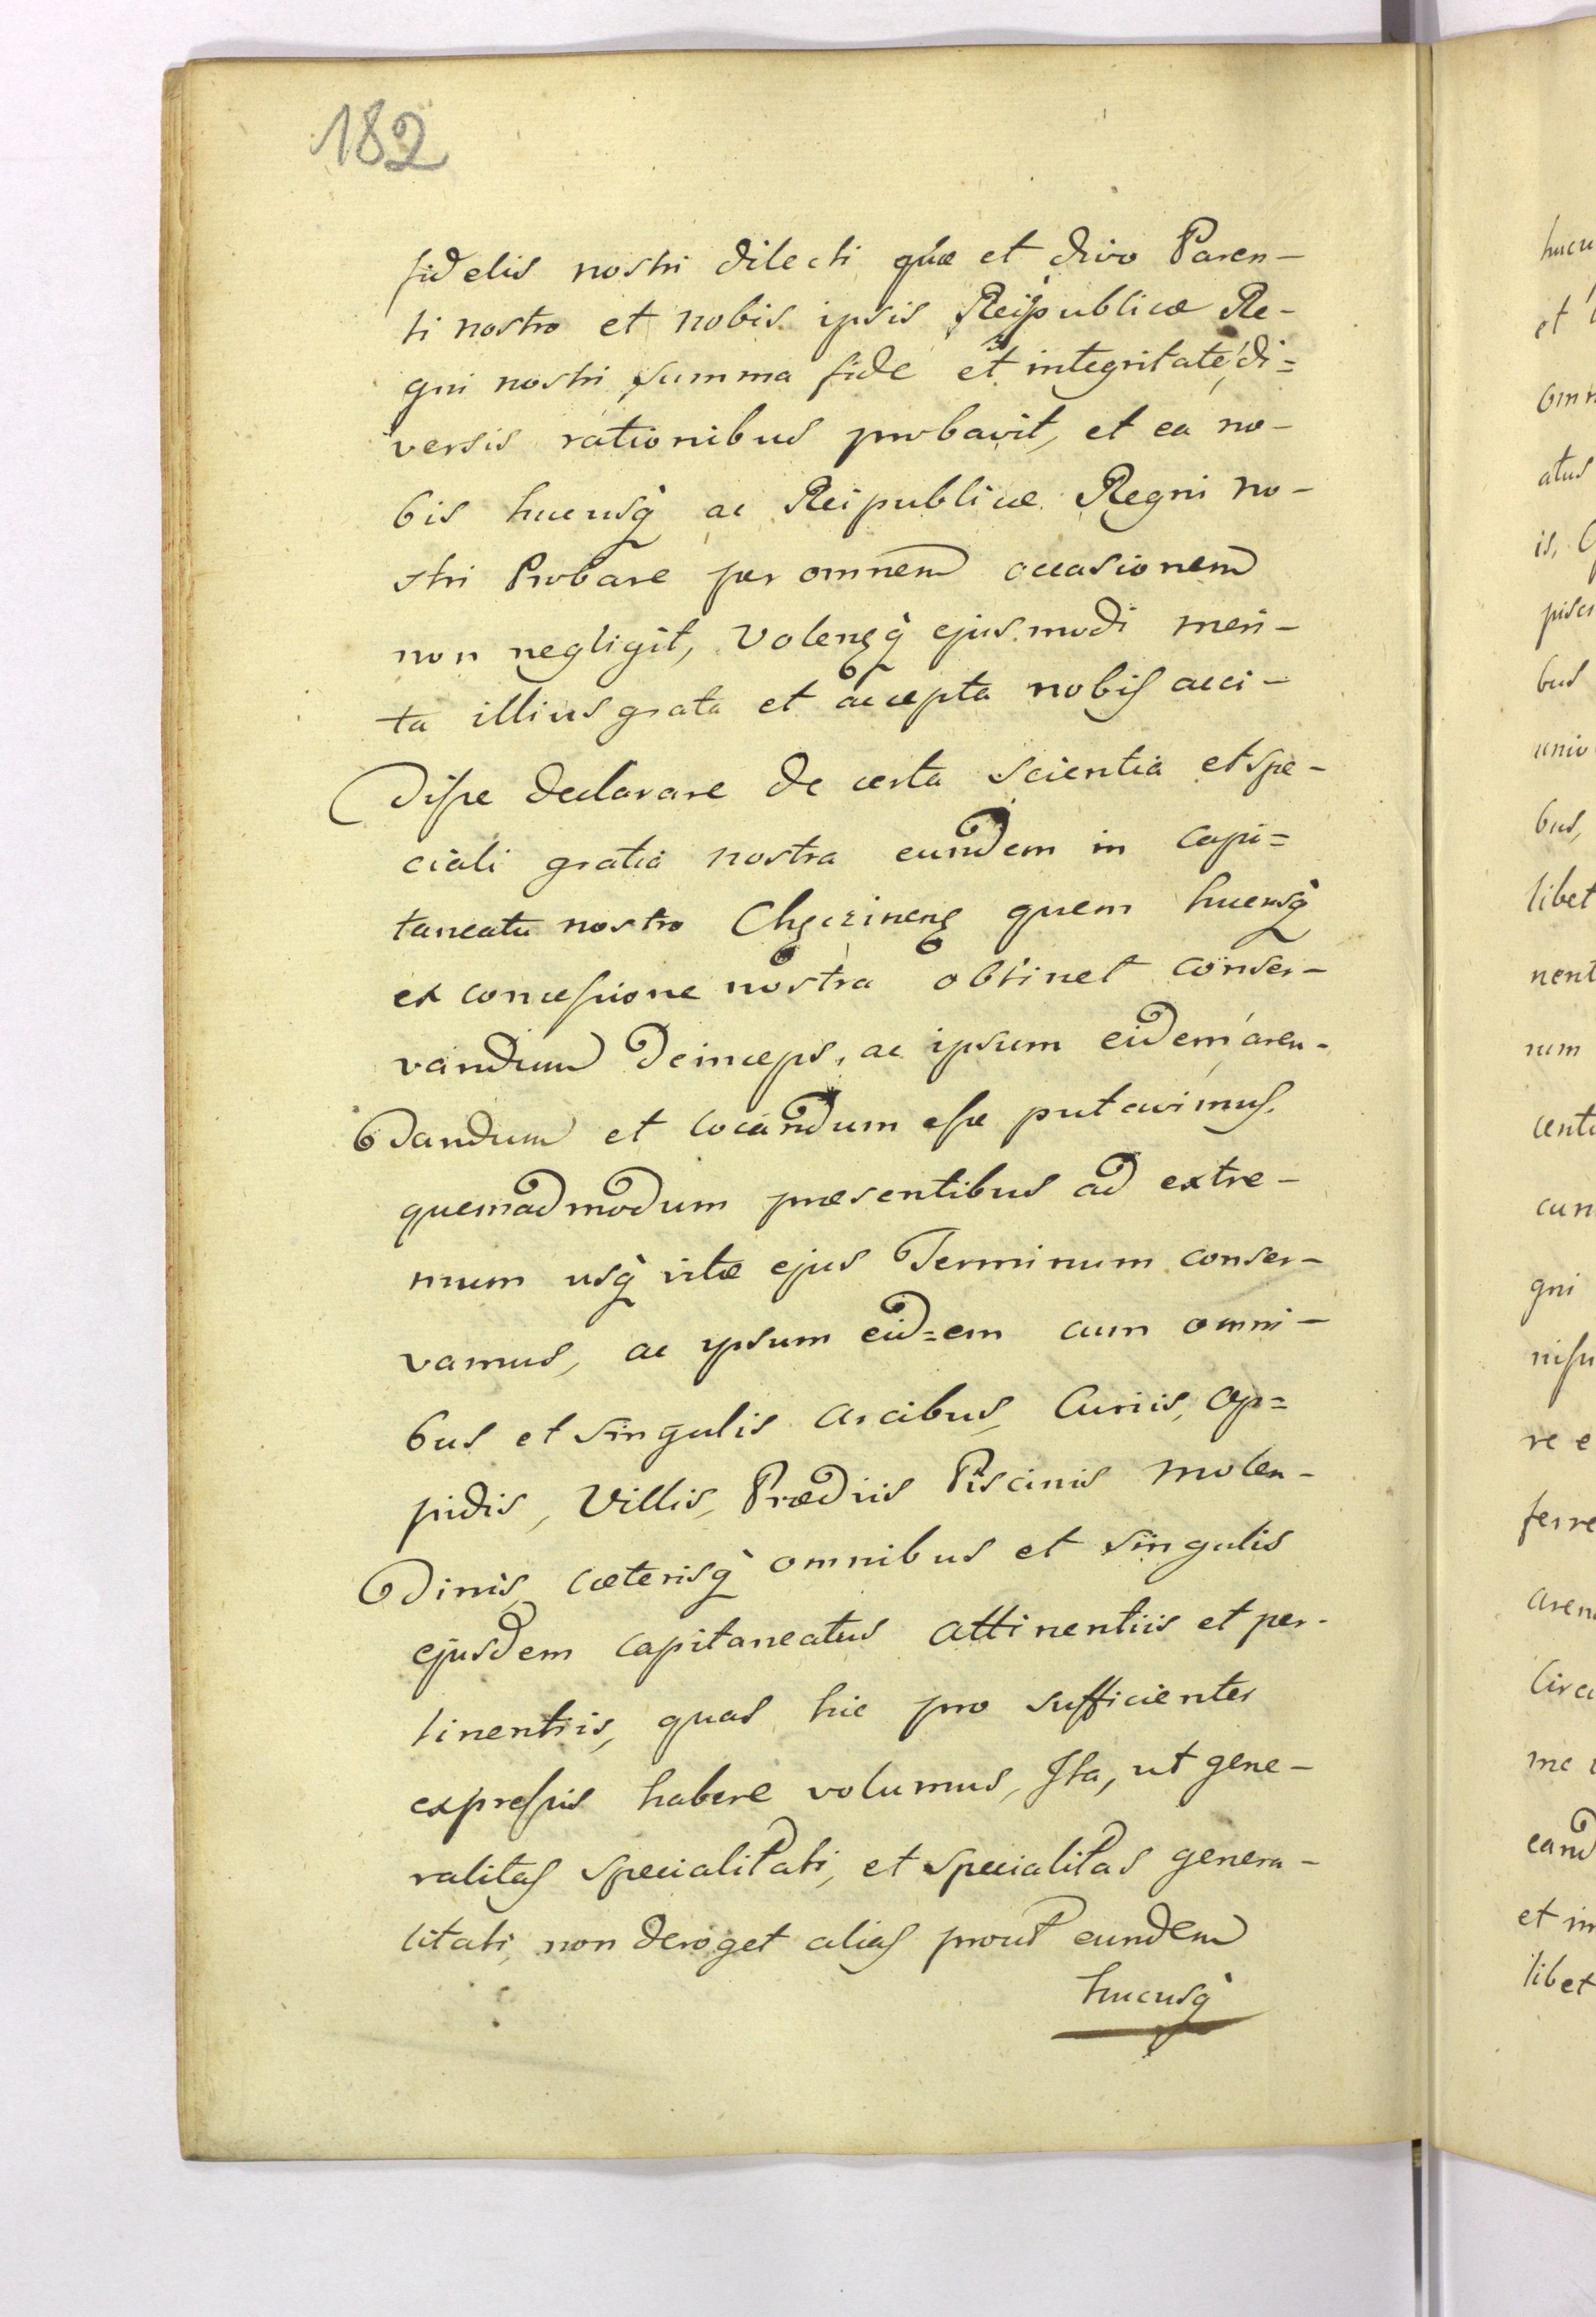 182
fidelis nostri dilecti quæ et divo Paren-
ti nostro et nobis ipsis Reipublicæ Re-
gni nostri summa fide et integritate di=
versis rationibus probavit, et ea no-
bis hucusq̀ ac Reipublicæ Regni no-
stri Probare per omnem occasionem
non negligit, Volensq̀ ejusmodi meri-
ta illius grata et accepta nobis acci-
disse declarare de certa scientia et spe-
ciali gratia nostra eundem in capi=
taneatu nostro quem hucusq̀
ex concessione nostra obtinet conser-
vandum deinceps, ac ipsum eidem aren-
dandum et locandum esse putavimus.
quemadmodum præsentibus ad extre-
mum usq̀ vitæ ejus Terminum conser-
vamus, ac ipsum eid=em cum omni-
bus et singulis Arcibus, Curiis, Op=
pidis, Villis, Prædiis Piscinis Molen-
dinis, cæterisq̀ omnibus et singulis
ejusdem capitaneatus attinentiis et per-
tinentiis, quas hic pro sufficienter
expressis habere volumus, Ita, ut gene-
ralitas specialitati, et specialitas genera-
litati, non deroget alias prout eundem
hucusq̀
hucu
et
omn
atus
is,
pisci
bus
univ
bus,
libet
nent
num
cent
cun
gni
nissi
re e
ferre
aren
Circ
me
eand
et in
libet